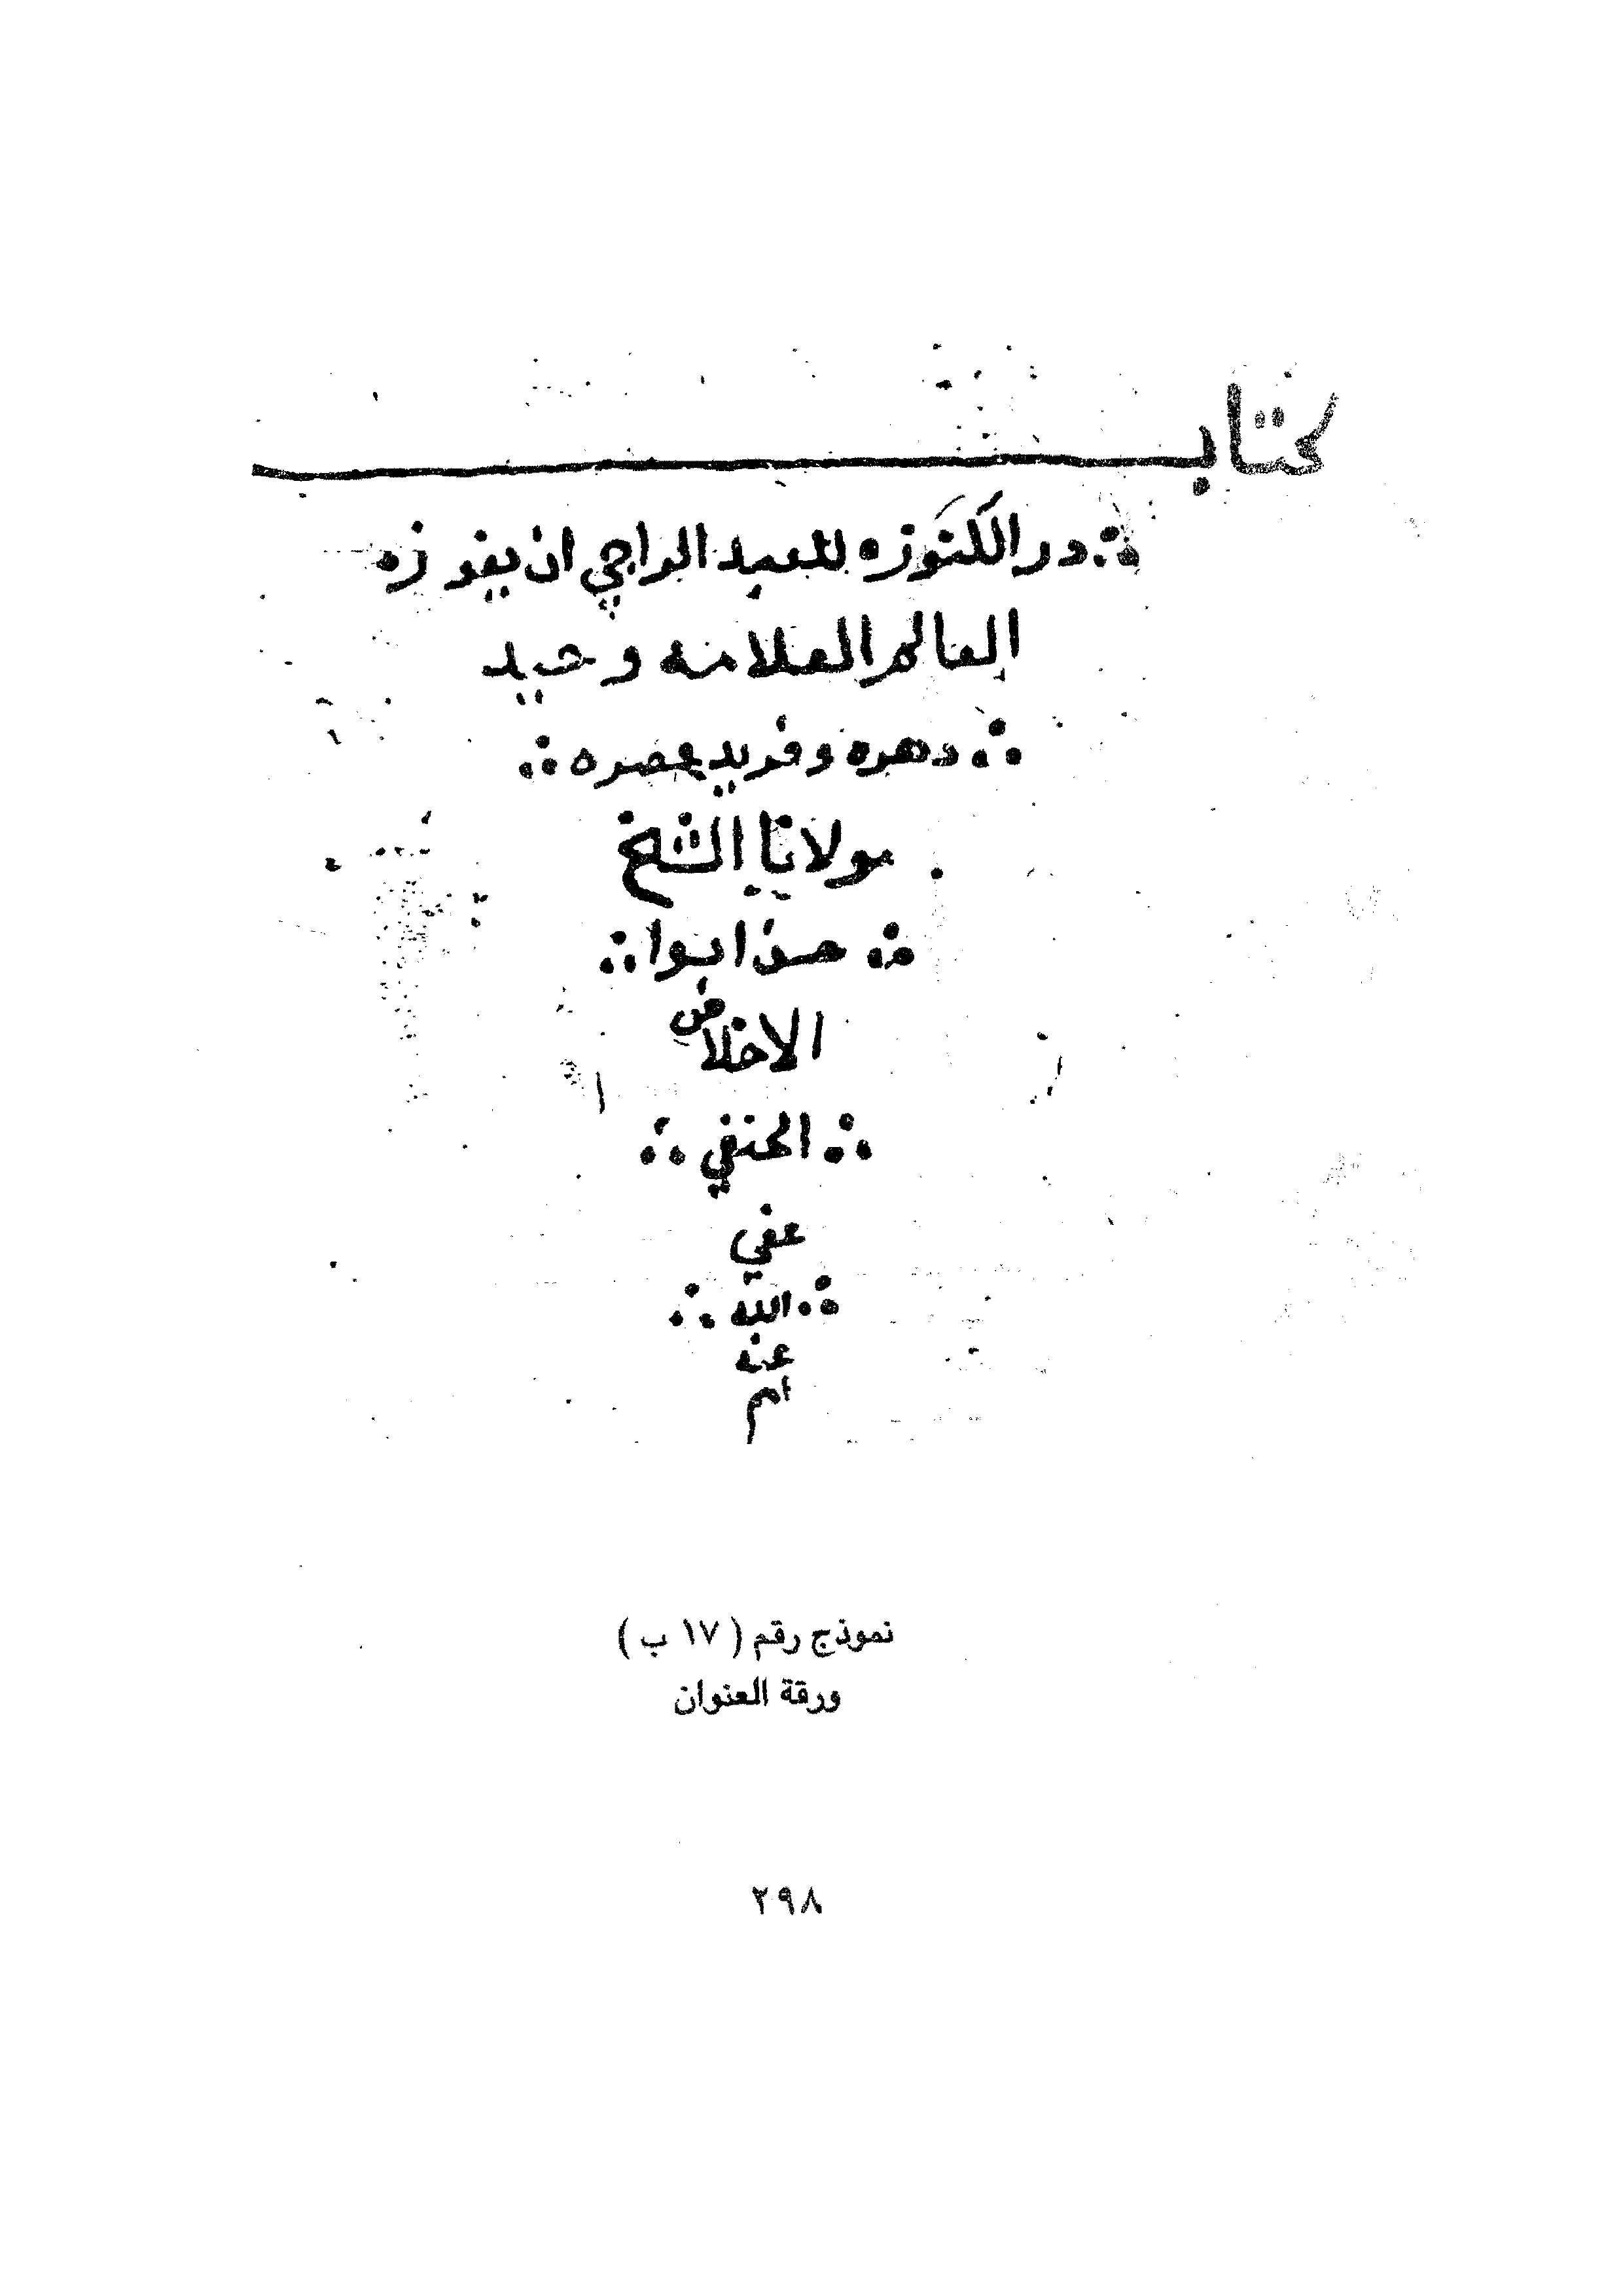 كتاب
در الكنوز للعبد الراجي ان يفوز
العالم العلامه وحيد
دهره وفريد عصره
مولانا الشيخ
حسن ابوا
الاخلاص
الحنفي
عفي
الله
عنه
ام
نموذج رقم ( ١٧ ب )
ورقة العنوان
٢٩٨